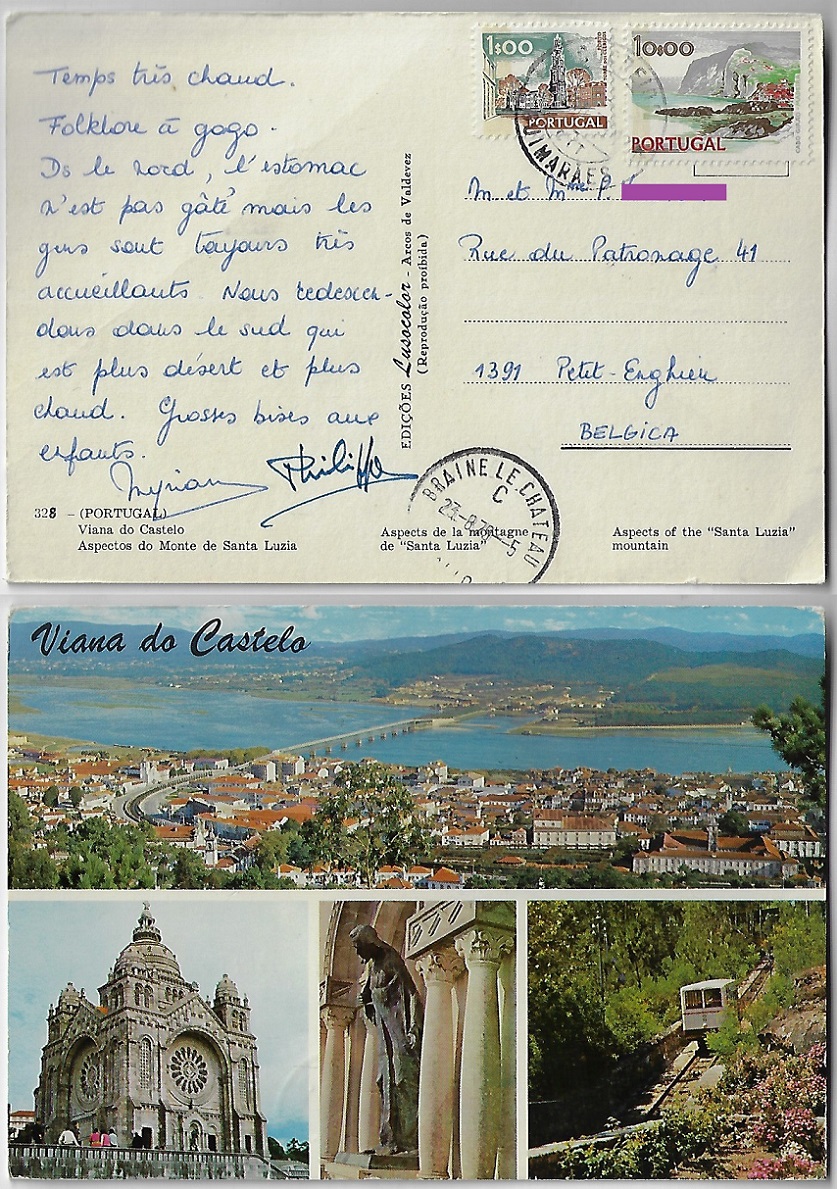 Temps très chaud.
Folklore à gogo.
Ds le nord, l'estomac
n'est pas gâté mais les
gens sont toujours très
accueillants. Nous redescen-
dons dans le sud qui
est plus désert et plus
chaud. Grosses bises aux
enfants.
Myriam Philippe
328 - (PORTUGAL)
Viana do Castelo
Aspectos do Monte de Santa Luzia
Aspects de la montagne
de "Santa Luzia"
Aspects of the "Santa Luzia"
mountain
EDIÇÕES Lusocolor - Arcos de Valdevez
(Reprodução proibida)
1$00
PORTO
PORTUGAL
10$00
PORTUGAL
GUIMARÃES
M. et Mme P.
Rue du Patronage 41
1391 Petit-Enghien
BELGICA
BRAINE-LE-CHATEAU
C
Viana do Castelo